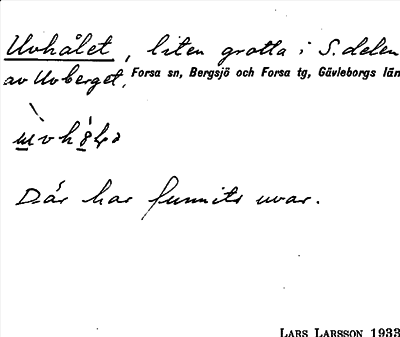 Uvhålet, liten grotta i S. delen
av Uvberget, Forsa sn, Bergsjö och Forsa tg, Gävleborgs län
Där har funnits uvar.
LARS LARSSON 1933